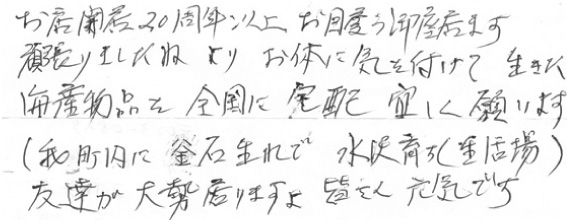 お店開店20周年以上 お目度う御座居ます
頑張りましたね より お体に気を付けて 生きた
海産物品を 全国に宅配 宜しく願います
(和町内に 釜石生れで 水沢育ち(生活場)
友達が大勢居りますよ 皆さん 元気です